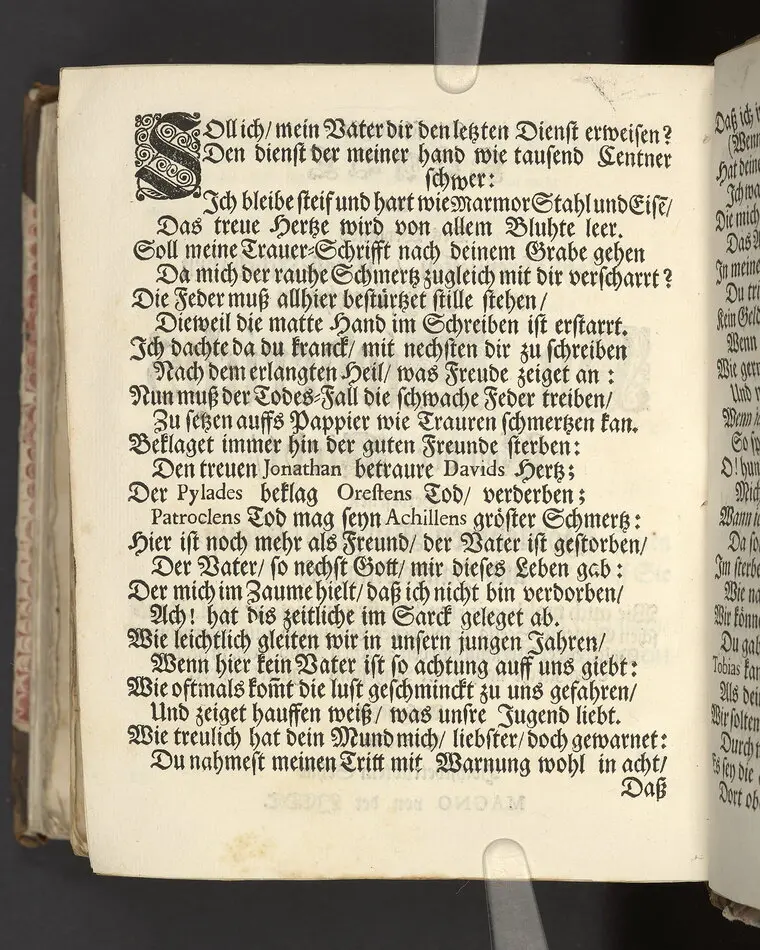 SOll ich/ mein Vater dir den letzten Dienst erweisen?
Den dienst der meiner hand wie tausend Centner
schwer:
Ich bleibe steif und hart wie Marmor Stahl und Eisē/
Das treue Hertze wird von allem Bluhte leer.
Soll meine Trauer-Schrifft nach deinem Grabe gehen
Da mich der rauhe Schmertz zugleich mit dir verscharrt?
Die Feder muß allhier bestürtzet stille stehen/
Dieweil die matte Hand im Schreiben ist erstarrt.
Ich dachte da du kranck/ mit nechsten dir zu schreiben
Nach dem erlangten Heil/ was Freude zeiget an:
Nun muß der Todes-Fall die schwache Feder treiben/
Zu setzen auffs Pappier wie Trauren schmertzen kan.
Beklaget immer hin der guten Freunde sterben:
Den treuen Jonathan betraure Davids Hertz;
Der Pylades beklag Orestens Tod/ verderben;
Patroclens Tod mag seyn Achillens gröster Schmertz:
Hier ist noch mehr als Freund/ der Vater ist gestorben/
Der Vater/ so nechst Gott/ mir dieses Leben gab:
Der mich im Zaume hielt/ daß ich nicht bin verdorben/
Ach! hat dis zeitliche im Sarck geleget ab.
Wie leichtlich gleiten wir in unsern jungen Jahren/
Wenn hier kein Vater ist so achtung auff uns giebt:
Wie oftmals kom̄t die lust geschminckt zu uns gefahren/
Und zeiget hauffen weiß/ was unsre Jugend liebt.
Wie treulich hat dein Mund mich/ liebster/ doch gewarnet:
Du nahmest meinen Tritt mit Warnung wohl in acht/
Daß
Daß ich
(Wenn
Hat deine
Ich wa
Die mich
Das A
In meine
Du tri
Kein Geld
Wenn
Wie gern
Und v
Wenn i
So sp
O! hun
Mich
Wann i
Da so
Im sterbe
Wie na
Wir könn
Du gab
Tobias kan
Als dei
Wir solten
Durch t
Es sey die
Dort ob